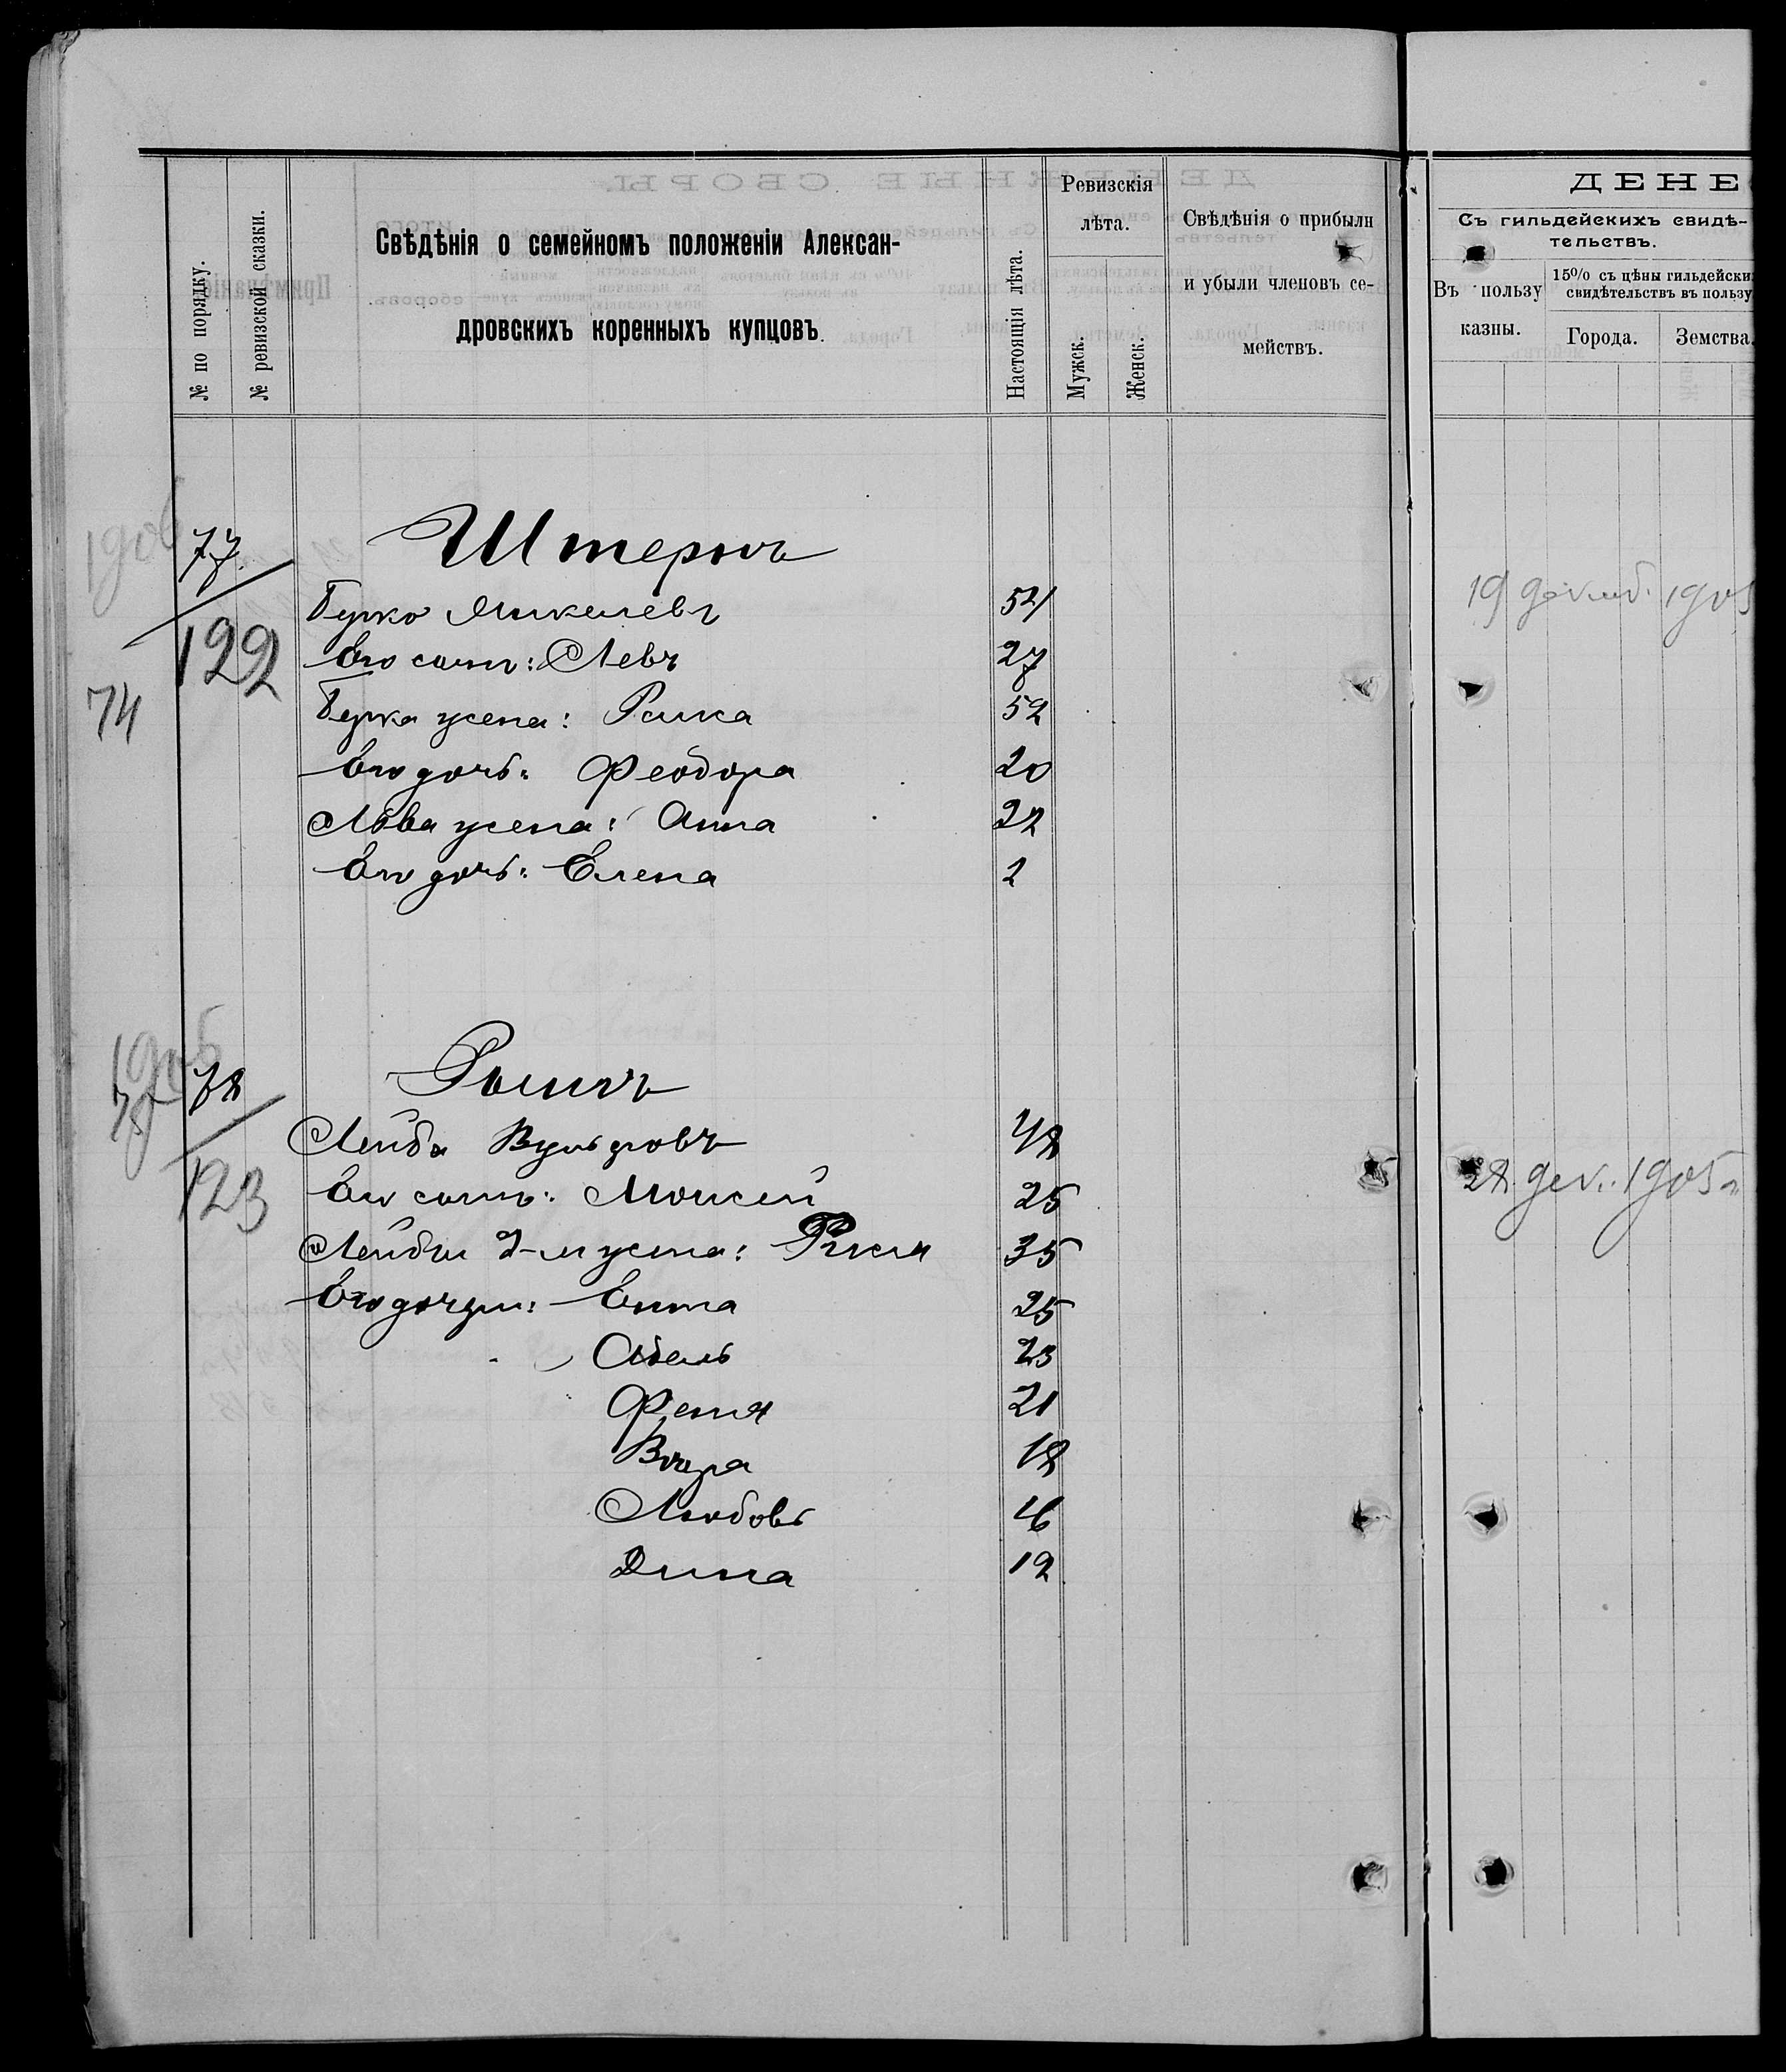 № по порядку.
№ ревизской сказки.
Свѣдѣнія о семейномъ положеніи Алексан-
дровскихъ коренныхъ купцовъ.
Настоящія лѣта.
Ревизскія
лѣта.
Мужск.
Женск.
Свѣдѣнія о прибыли
и убыли членовъ се-
мействъ.
ДЕНЕ
Съ гильдейскихъ свидѣ-
тельствъ.
Въ пользу
казны.
15% съ цѣны гильдейски
свидѣтельствъ въ пользу
Города.
Земства.
1906
77.
Штернъ
122
74
Берко 54
Его сынъ: Левъ 27
Берка жена: 52
Его дочь: Феодора 20
Льва жена: Анна 22
Его дочь: Елена 2
19 декаб. 1905
1906
78
75
123
Лейба Вульфовъ 48
Его сынъ: Моисей 25
Лейбы 2-я жена: 35
Его дочери: 25
Адель 23
Феня 21
Вѣра 18
Любовь 16
Дина 12
28 дек. 1905 г.